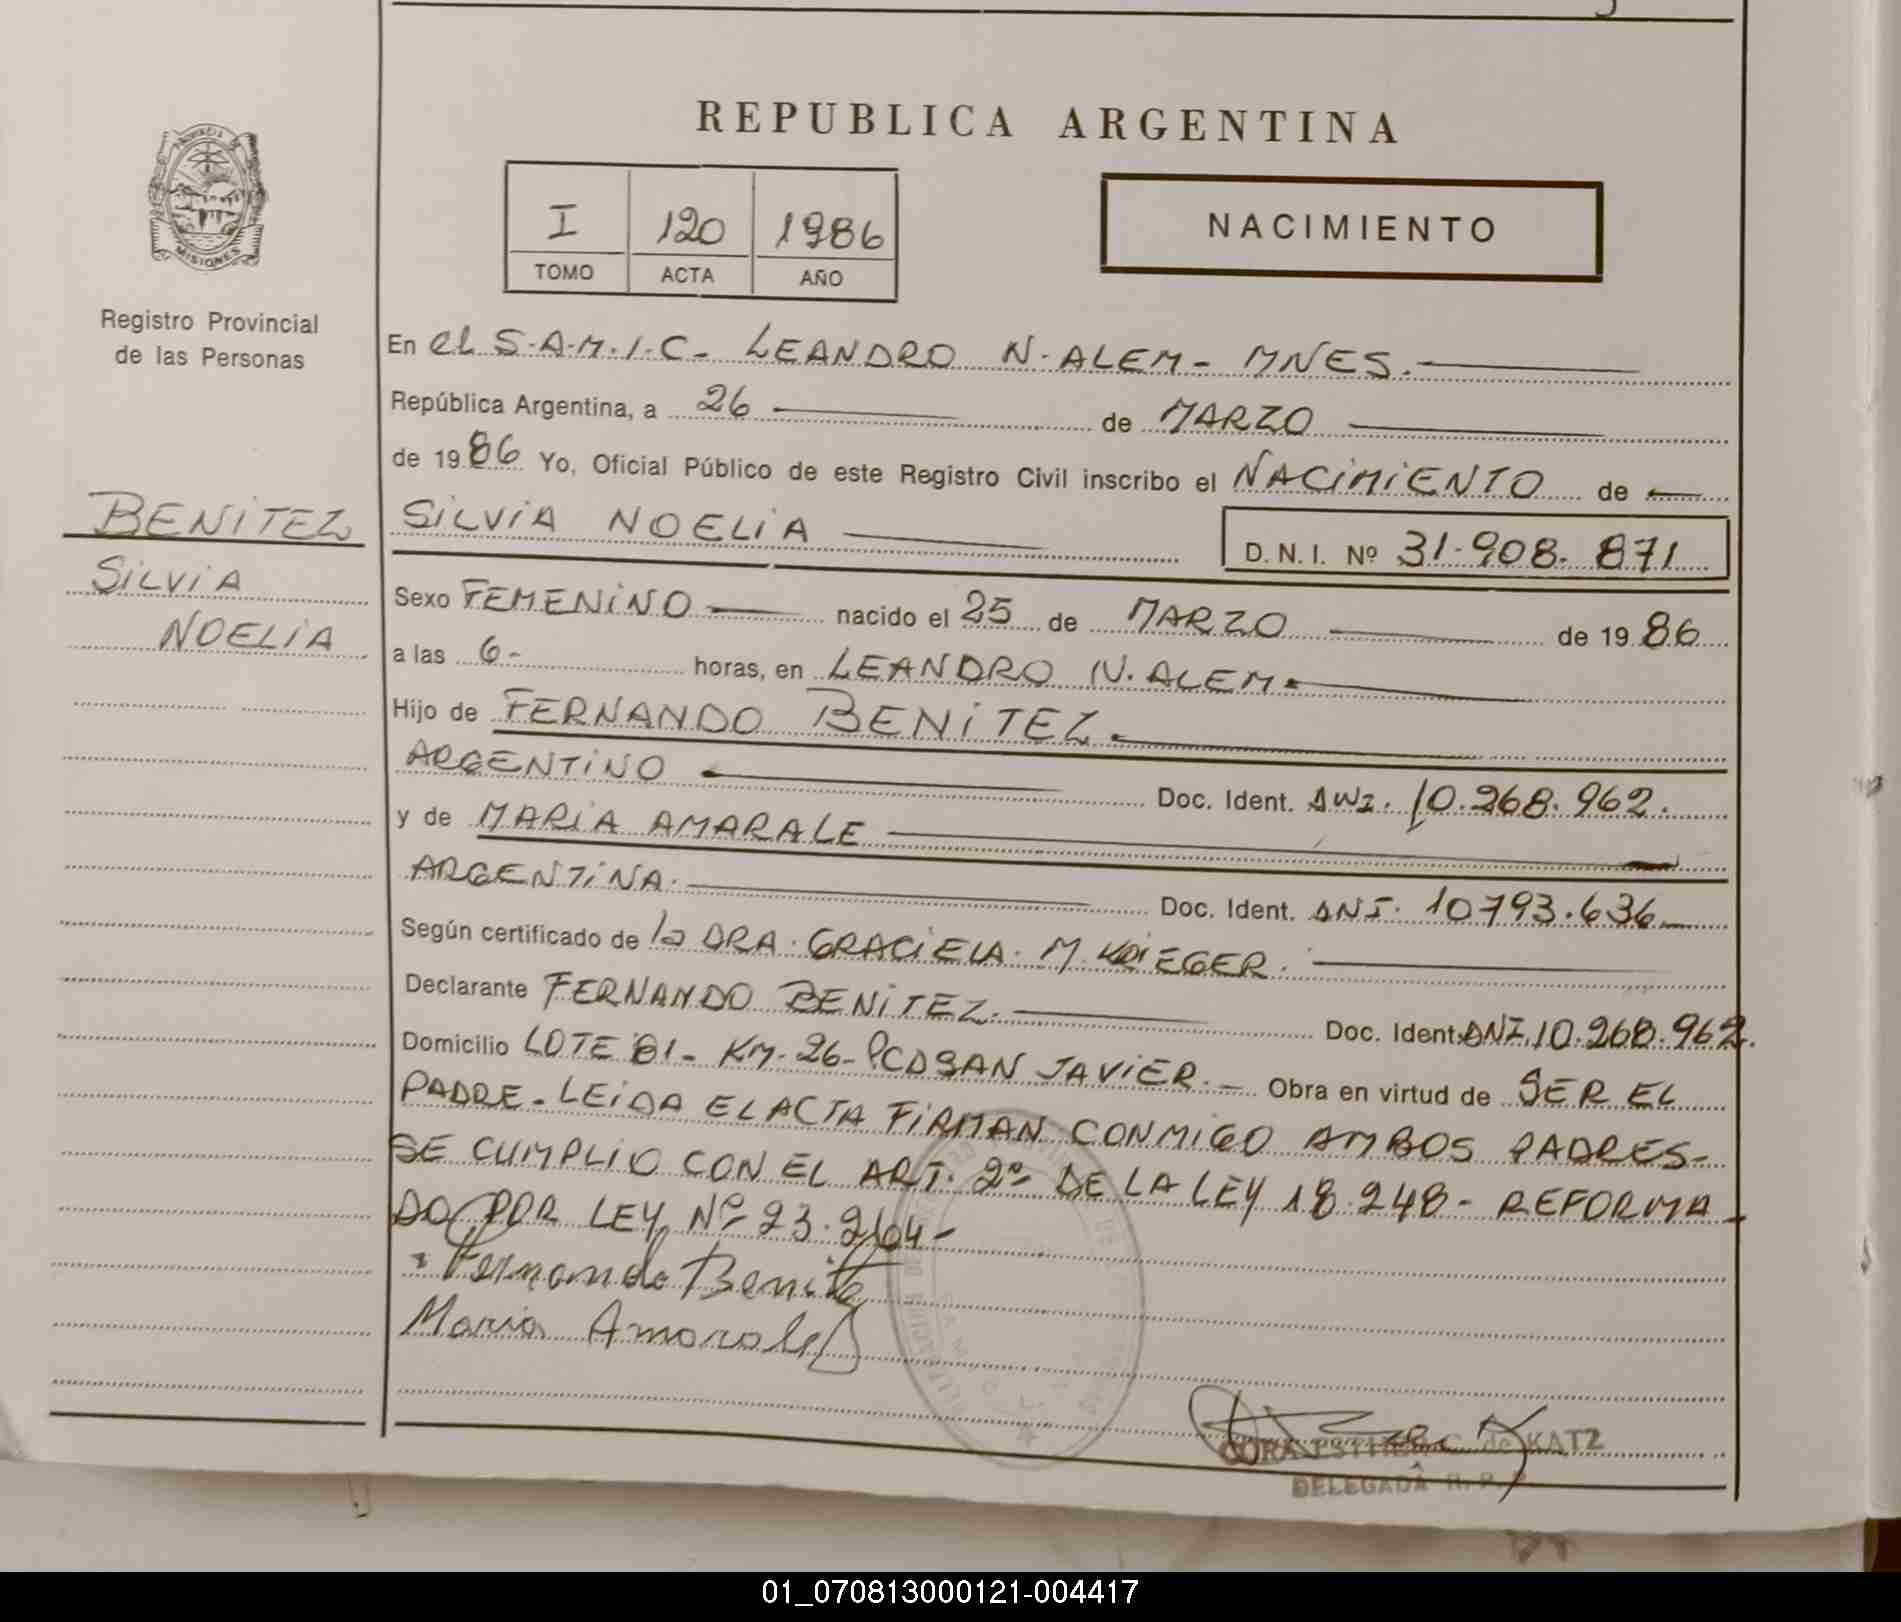 REPUBLICA ARGENTINA
PROVINCIA DE MISIONES
I 120 1986
TOMO ACTA AÑO
NACIMIENTO
Registro Provincial
de las Personas
BENITEZ
SILVIA
NOELIA
En el S.A.M.I.C- LEANDRO N. ALEM- MNES.
República Argentina, a 26 de MARZO
de 1986 Yo, Oficial Público de este Registro Civil inscribo el NACIMIENTO de
SILVIA NOELIA D. N. I. Nº 31.908.871
Sexo FEMENINO nacido el 25 de MARZO de 1986
a las 6- horas, en LEANDRO N. ALEM.
Hijo de FERNANDO BENITEZ.
ARGENTINO Doc. Ident. DNI. 10.268.962.
y de MARIA AMARALE
ARGENTINA. Doc. Ident. DNI. 10793.636
Según certificado de la DRA. GRACIELA. M. KRIEGER.
Declarante FERNANDO BENITEZ. Doc. Ident. DNI. 10.268.962.
Domicilio LOTE 81- KM-26- PCD SAN JAVIER.- Obra en virtud de SER EL
PADRE- LEIDA EL ACTA FIRMAN CONMIGO AMBOS PADRES-
SE CUMPLIO CON EL ART. 2º DE LA LEY 18.248- REFORMA-
DO POR LEY Nº 23.264-
Fernando Benite
Maria Amarale
CORA ESTHER C. de KATZ
DELEGADA R. P. P.
01_070813000121-004417